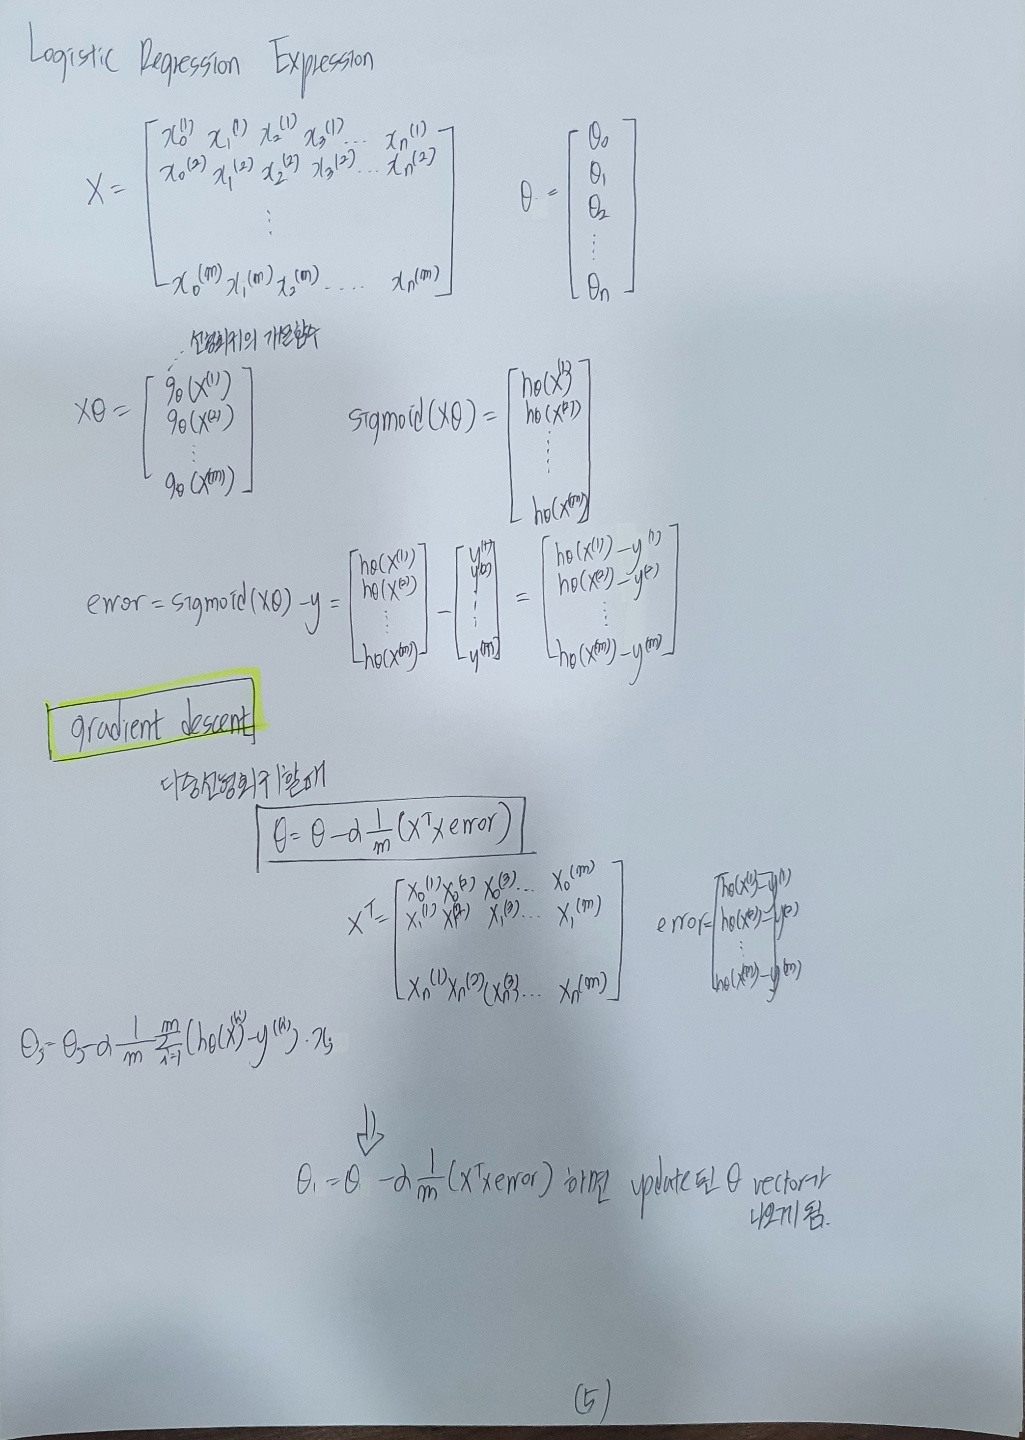 Logistic Regression Expression
X = [ x₀⁽¹⁾ x₁⁽¹⁾ x₂⁽¹⁾ x₃⁽¹⁾ ... xₙ⁽¹⁾
x₀⁽²⁾ x₁⁽²⁾ x₂⁽²⁾ x₃⁽²⁾ ... xₙ⁽²⁾
⋮
x₀⁽ᵐ⁾ x₁⁽ᵐ⁾ x₂⁽ᵐ⁾ .... xₙ⁽ᵐ⁾ ]
θ = [ θ₀
θ₁
θ₂
⋮
θₙ ]
선형회귀의 가설함수
Xθ = [ gθ(X⁽¹⁾)
gθ(X⁽²⁾)
⋮
gθ(X⁽ᵐ⁾) ]
sigmoid(Xθ) = [ hθ(X⁽¹⁾)
hθ(X⁽²⁾)
⋮
hθ(X⁽ᵐ⁾) ]
error = sigmoid(Xθ) - y = [ hθ(X⁽¹⁾) hθ(X⁽²⁾) ⋮ hθ(X⁽ᵐ⁾) ] - [ y⁽¹⁾ y⁽²⁾ ⋮ y⁽ᵐ⁾ ] = [ hθ(X⁽¹⁾) - y⁽¹⁾ hθ(X⁽²⁾) - y⁽²⁾ ⋮ hθ(X⁽ᵐ⁾) - y⁽ᵐ⁾ ]
gradient descent
다중선형회귀 할때
θ = θ - α 1/m (Xᵀ x error)
Xᵀ = [ X₀⁽¹⁾ X₀⁽²⁾ X₀⁽³⁾ ... X₀⁽ᵐ⁾
X₁⁽¹⁾ X₁⁽²⁾ X₁⁽³⁾ ... X₁⁽ᵐ⁾
Xₙ⁽¹⁾ Xₙ⁽²⁾ Xₙ⁽³⁾ ... Xₙ⁽ᵐ⁾ ]
error = [ hθ(X⁽¹⁾) - y⁽¹⁾
hθ(X⁽²⁾) - y⁽²⁾
⋮
hθ(X⁽ᵐ⁾) - y⁽ᵐ⁾ ]
θⱼ = θⱼ - α 1/m Σᵢ₌₁ᵐ (hθ(X⁽ⁱ⁾) - y⁽ⁱ⁾) · xⱼ
⇓
θ₁ = θ - α 1/m (Xᵀ x error) 하면 update 된 θ vector가
나오게 됨.
(5)